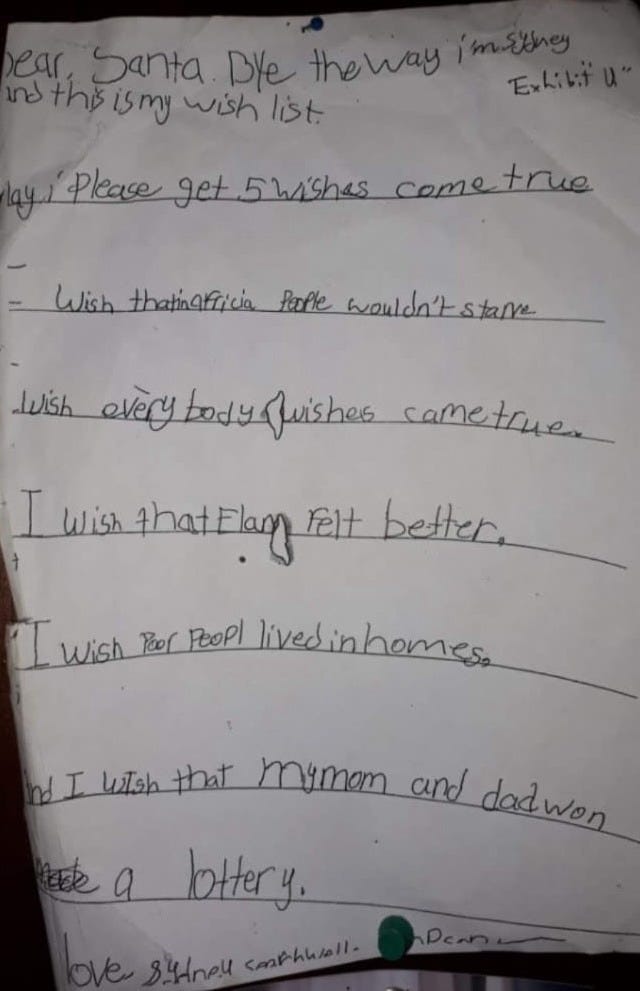 Dear, Santa. Bye the way i'm Sydney
Exhibit "U"
and this is my wish list.
May i Please get 5 wishes come true
- Wish that in affricia People wouldn't starve
wish every body wishes came true.
I wish that felt better.
I wish Poor Peopl lived in homes.
And I wish that my mom and dad won
a lottery.
love Sydney